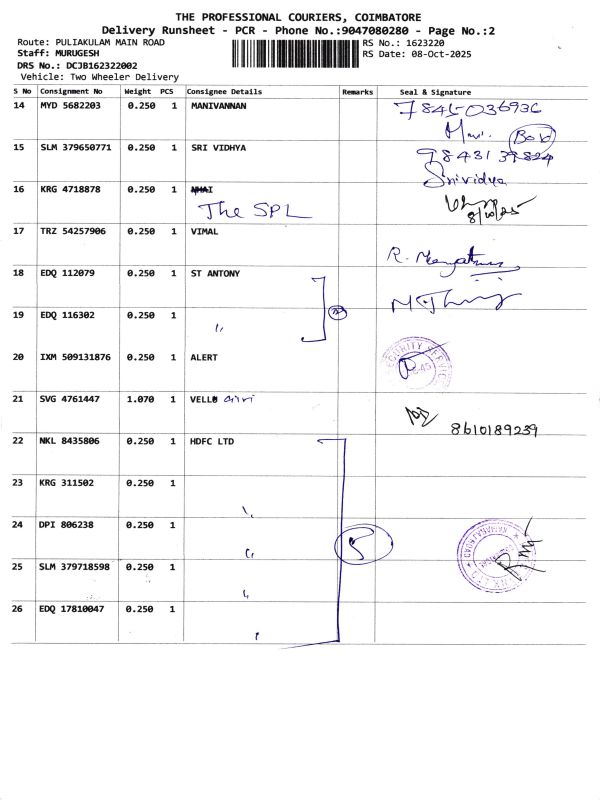 THE PROFESSIONAL COURIERS, COIMBATORE
Delivery Runsheet - PCR - Phone No.:9047080280 - Page No.:2
Route: PULIAKULAM MAIN ROAD RS No.: 1623220
Staff: MURUGESH RS Date: 08-Oct-2025
DRS No.: DCJB162322002
Vehicle: Two Wheeler Delivery
S No Consignment No Weight PCS Consignee Details Remarks Seal & Signature
14 MYD 5682203 0.250 1 MANIVANNAN 7845-036936
15 SLM 379650771 0.250 1 SRI VIDHYA 98431 39824
Srividya
16 KRG 4718878 0.250 1
The SPL 8/10/25
17 TRZ 54257906 0.250 1 VIMAL
18 EDQ 112079 0.250 1 ST ANTONY
19 EDQ 116302 0.250 1 ,, 2
20 IXM 509131876 0.250 1 ALERT
21 SVG 4761447 1.070 1 VELL
8610189239
22 NKL 8435806 0.250 1 HDFC LTD
23 KRG 311502 0.250 1
24 DPI 806238 0.250 1 ,, 5
25 SLM 379718598 0.250 1 ,,
26 EDQ 17810047 0.250 1